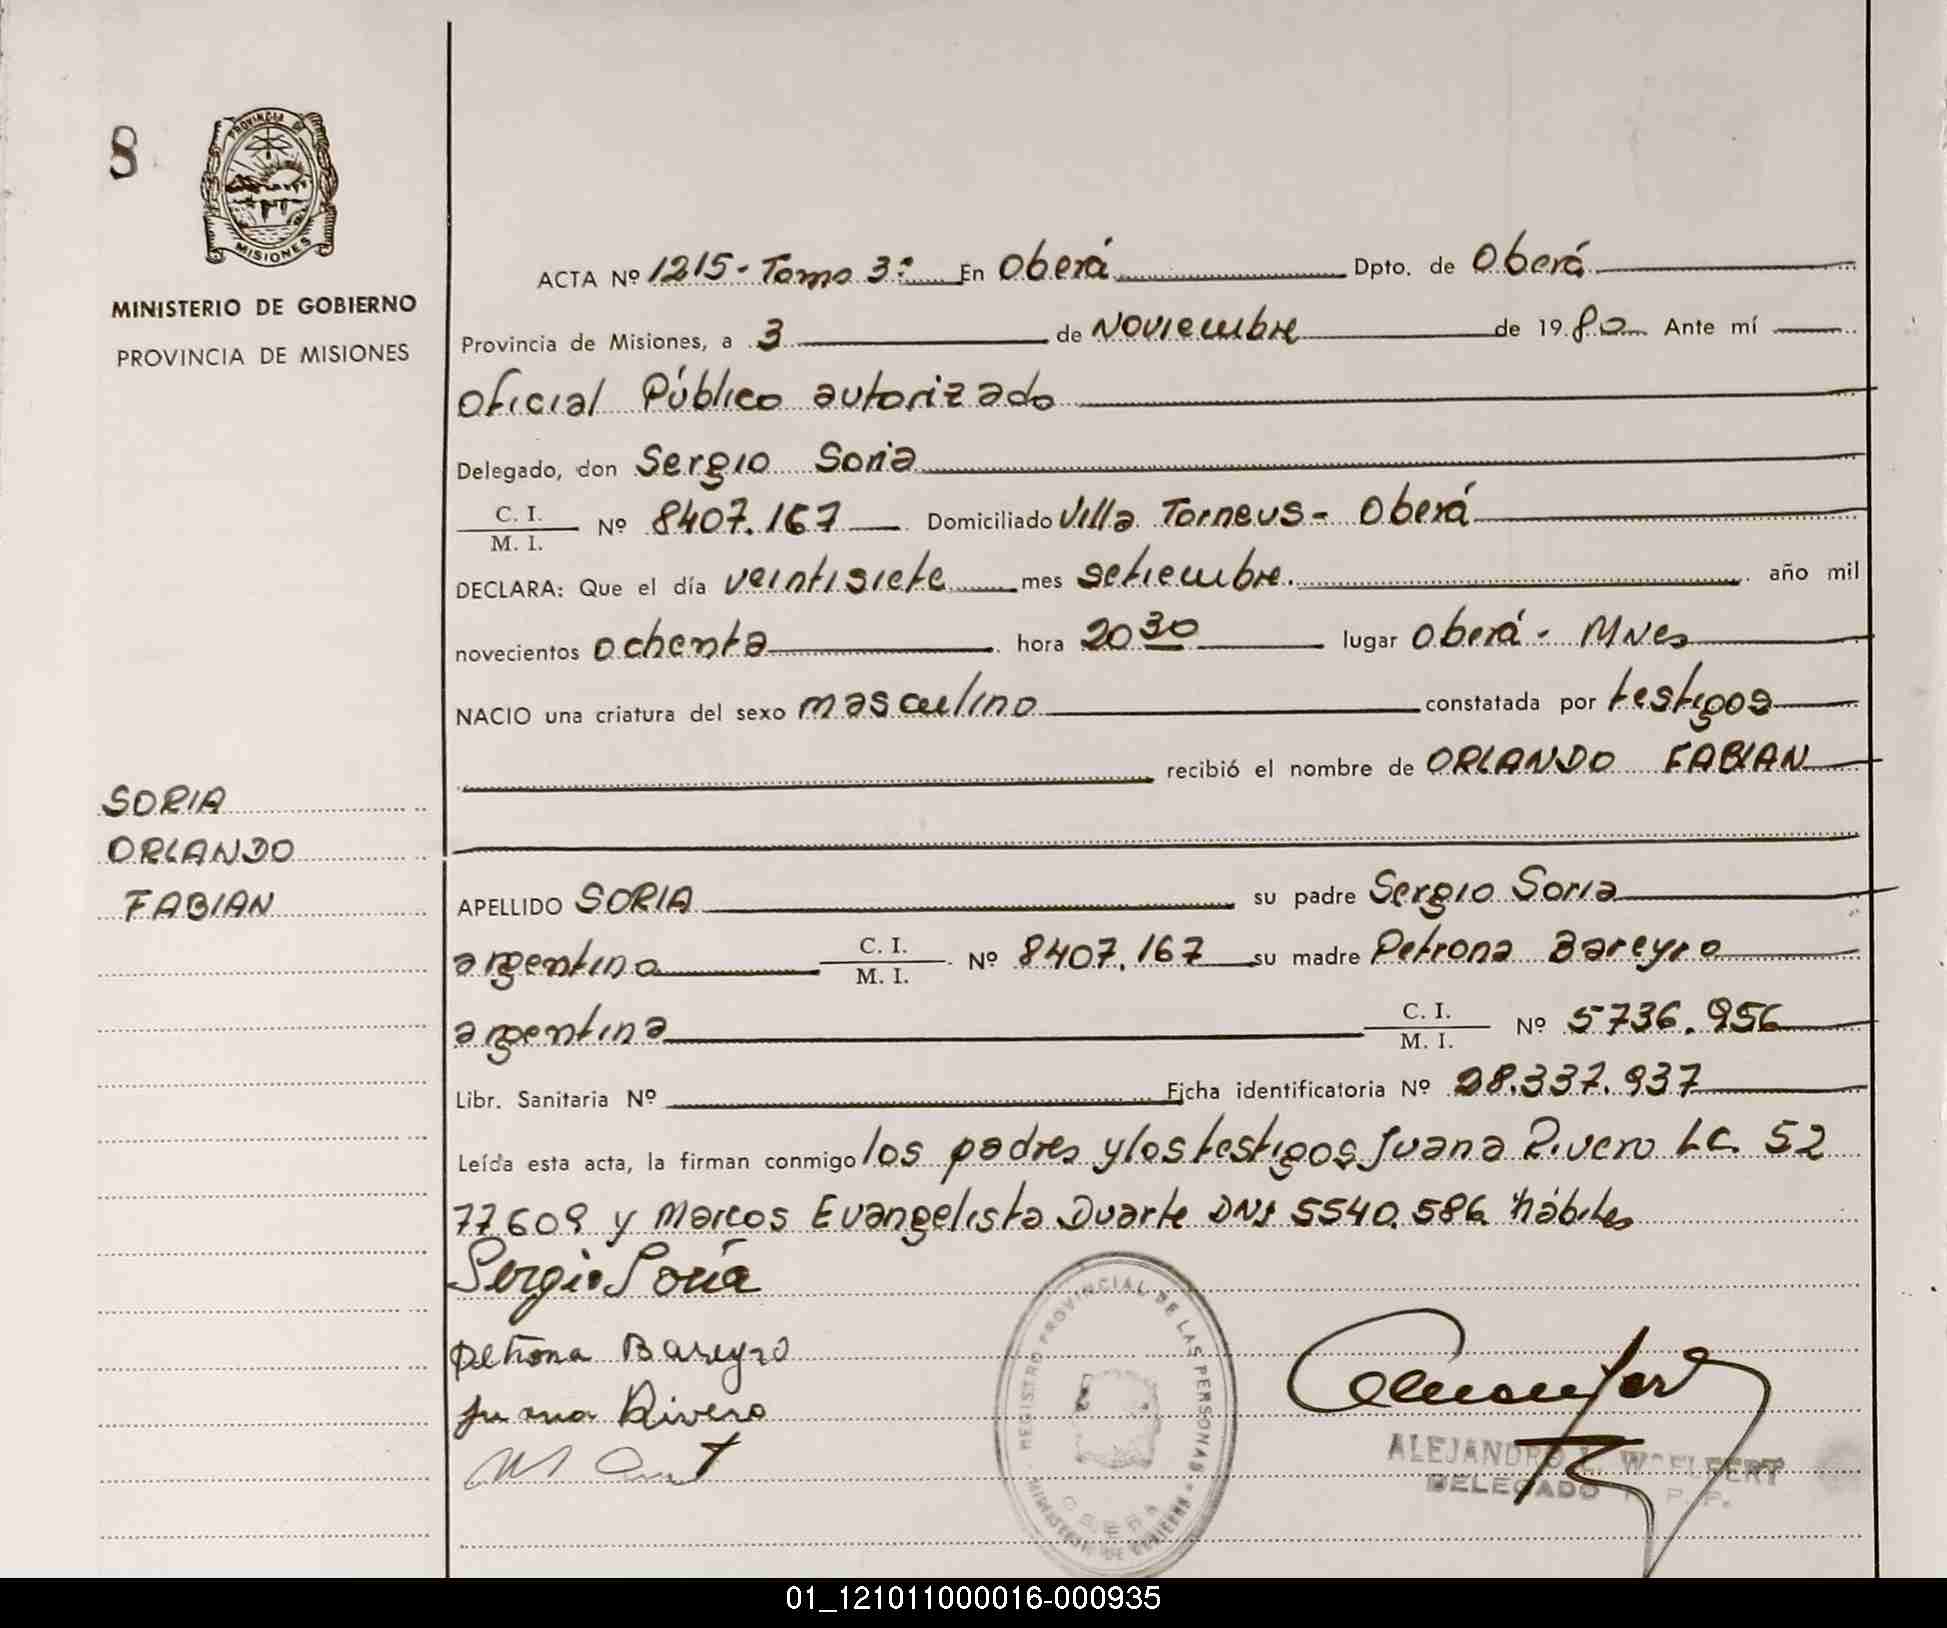 8
PROVINCIA DE
MISIONES
MINISTERIO DE GOBIERNO
PROVINCIA DE MISIONES
SORIA
ORLANDO
FABIAN
ACTA Nº 1215 - Tomo 3º En Oberá Dpto. de Oberá
Provincia de Misiones, a 3 de Noviembre de 1980 Ante mí
Oficial Público autorizado
Delegado, don Sergio Soria
C. I.
M. I. Nº 8407.167 Domiciliado Villa Torneus - Oberá
DECLARA: Que el día veintisiete mes setiembre. año mil
novecientos ochenta hora 20 30 lugar Oberá - Mnes
NACIO una criatura del sexo masculino constatada por testigos
recibió el nombre de ORLANDO FABIAN
APELLIDO SORIA su padre Sergio Soria
argentino C. I.
M. I. Nº 8407.167 su madre Petrona Bareyro
argentina C. I.
M. I. Nº 5736.956
Libr. Sanitaria Nº Ficha identificatoria Nº 28.337.937
Leída esta acta, la firman conmigo los padres y los testigos Juana Rivero LC. 52
77609 y Marcos Evangelista Duarte DNI 5540.586 hábiles
Sergio Soria
Petrona Bareyro
Juana Rivero
REGISTRO PROVINCIAL DE LAS PERSONAS
MINISTERIO DE GOBIERNO
OBERA
ALEJANDRO L. WOELFERT
DELEGADO R. P. P.
01_121011000016-000935